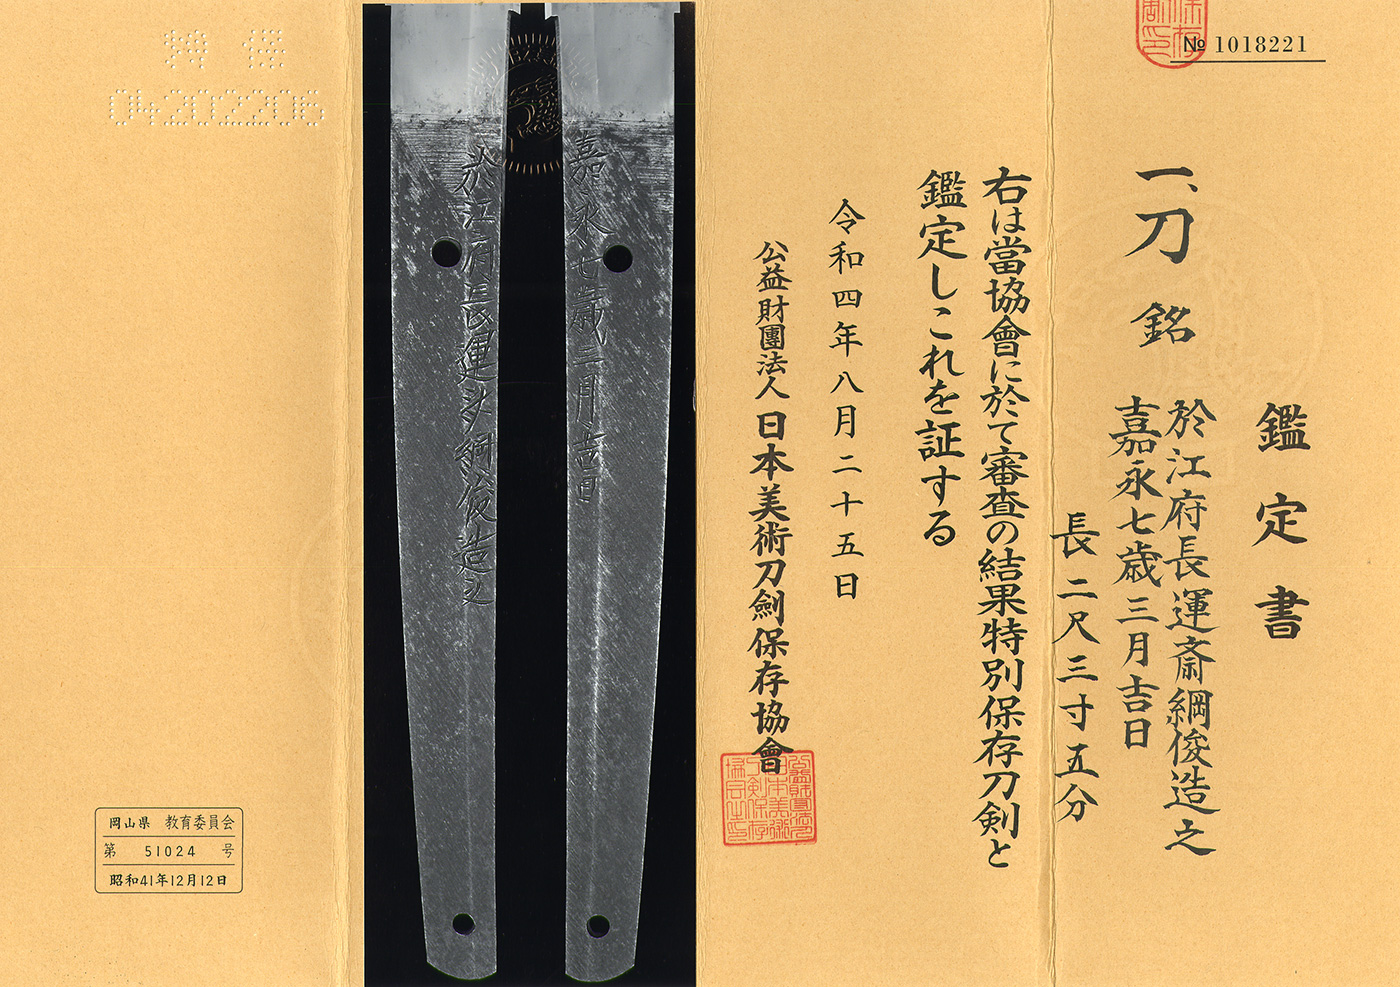 № 1018221
鑑定書
一、刀 銘
於江府長運斎綱俊造之
嘉永七歳三月吉日
長二尺三寸五分
右は當協會に於て審査の結果特別保存刀剣と
鑑定しこれを証する
令和四年八月二十五日
公益財團法人日本美術刀劍保存協會
嘉永七歳三月吉日
於江府長運斎綱俊造之
特保
04202206
岡山県 教育委員会
第 51024 号
昭和41年12月12日